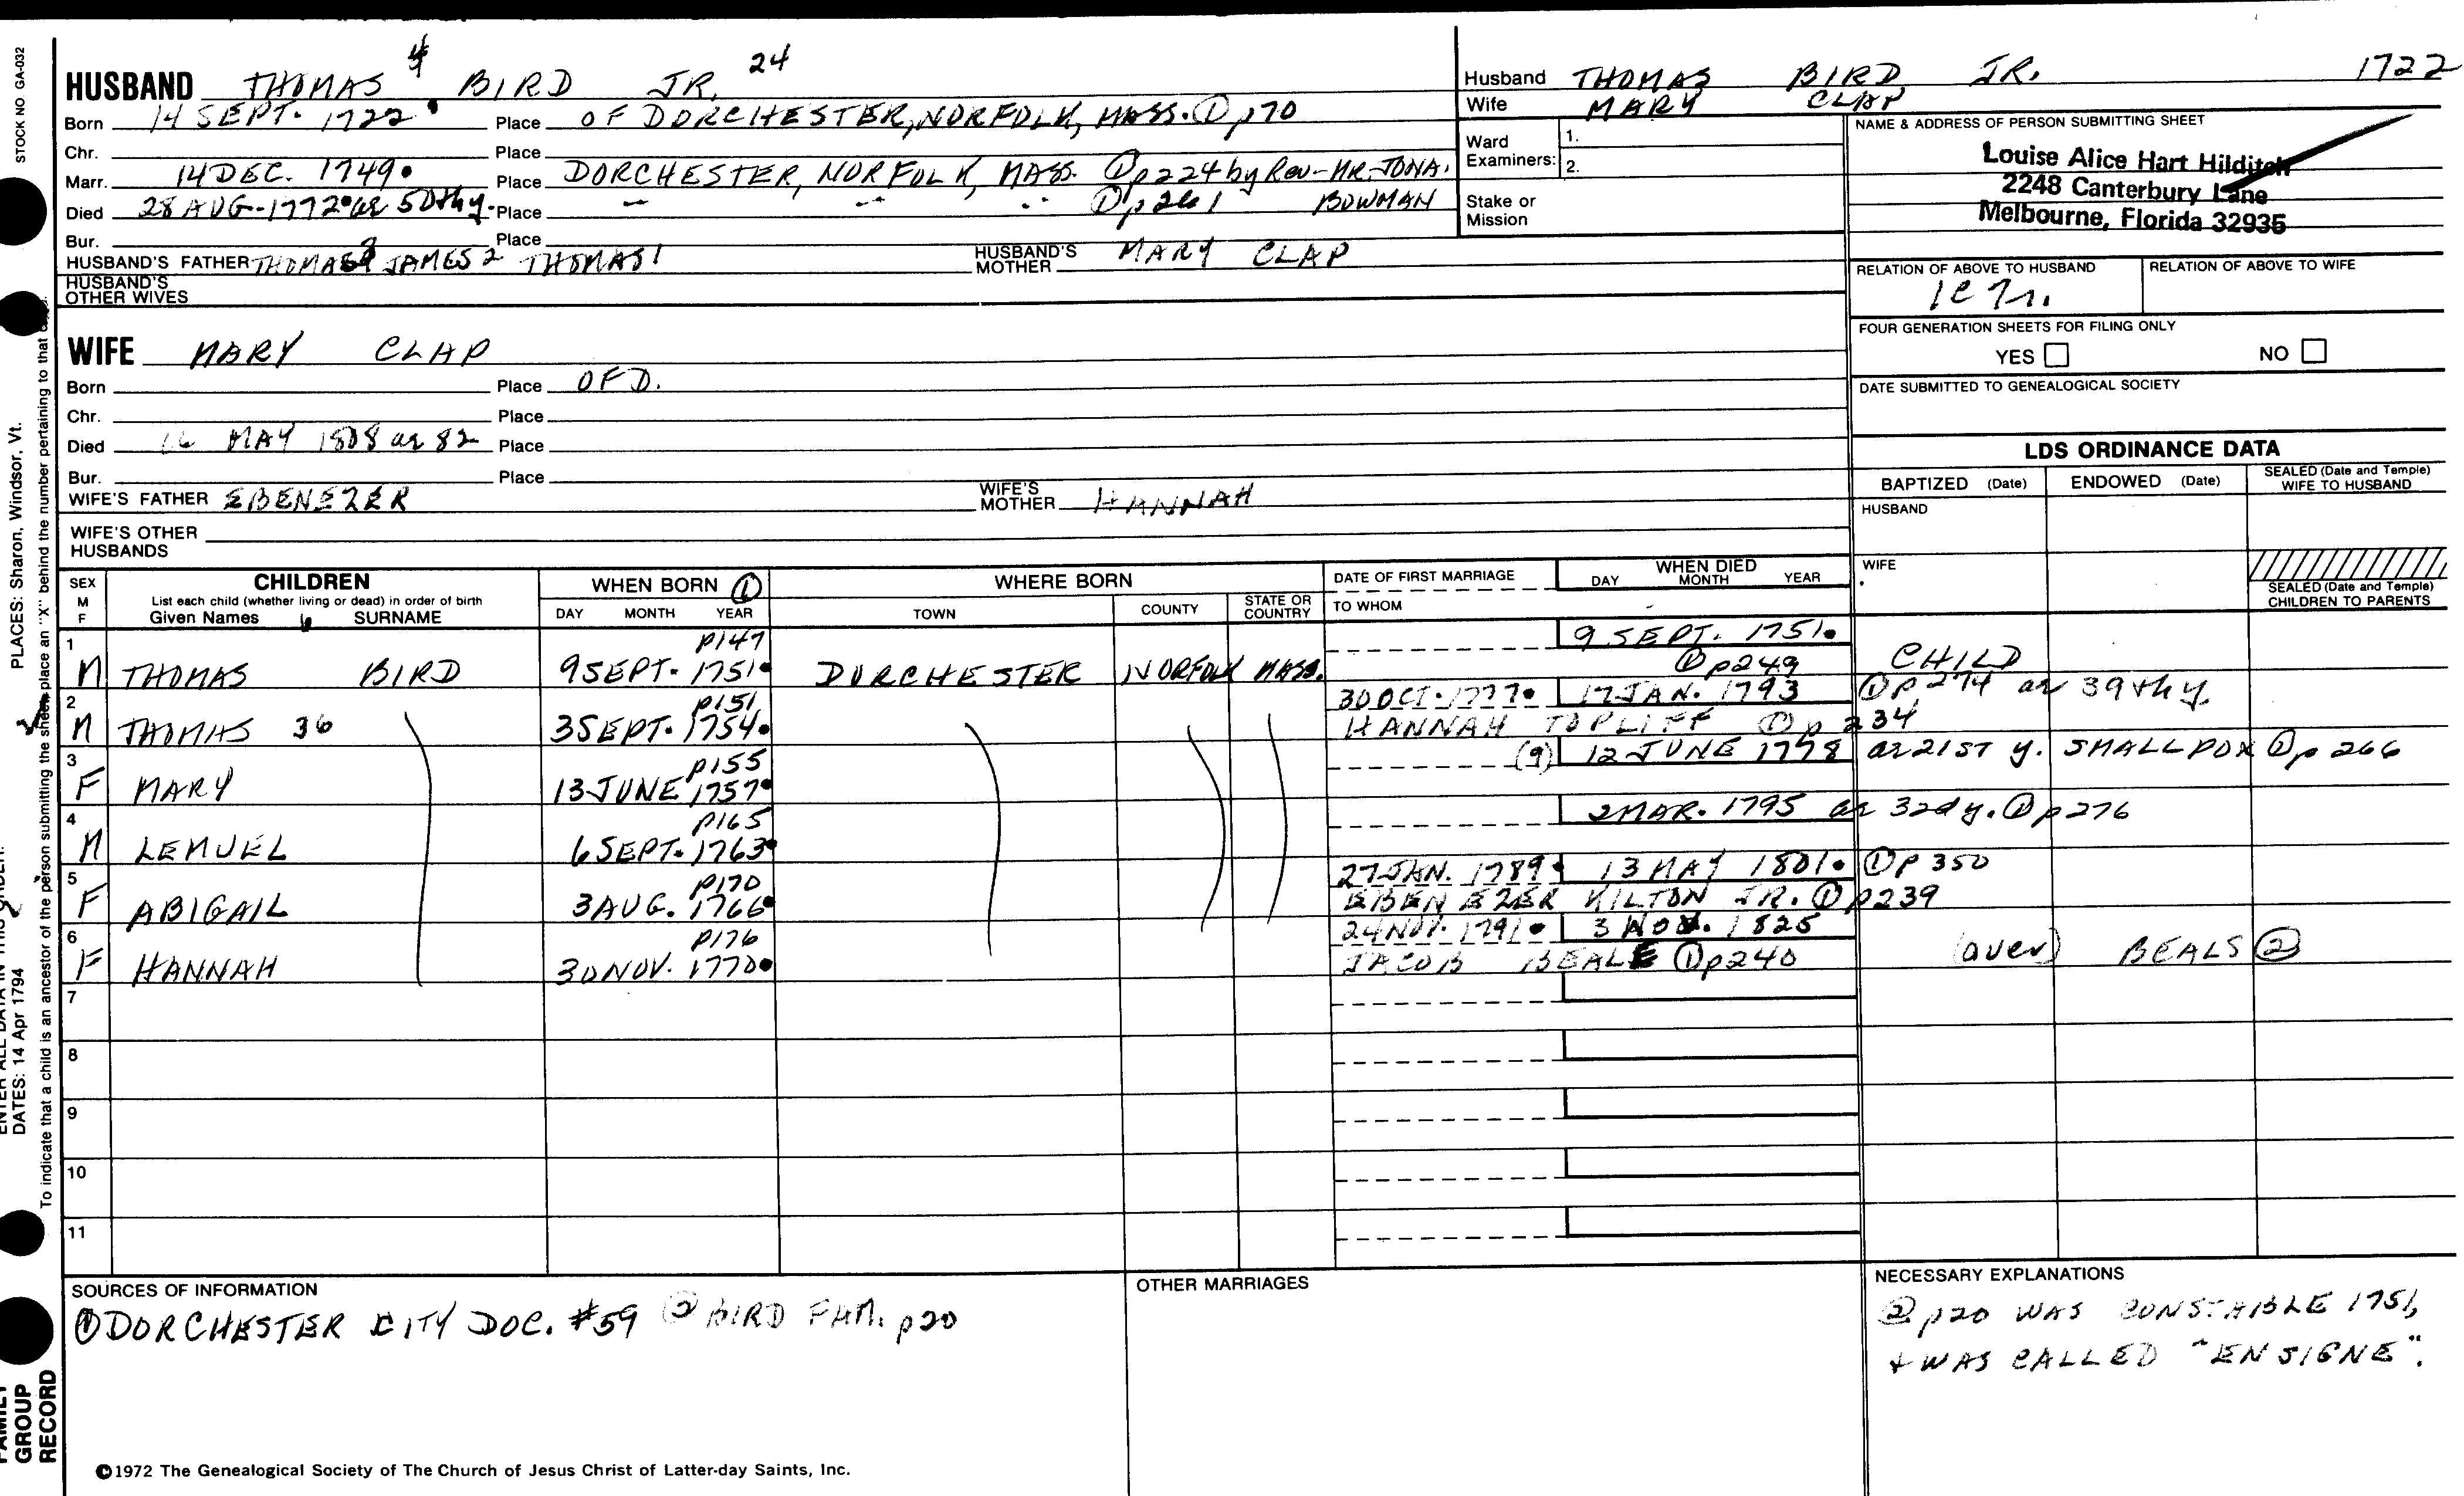 STOCK NO GA-032
HUSBAND THOMAS 4 BIRD JR. 24
Born 14 SEPT. 1722 Place OF DORCHESTER, NORFOLK, MASS. ① p70
Chr. Place
Marr. 14 DEC. 1749 Place DORCHESTER, NORFOLK, MASS. ① p224 by Rev-MR. JONA.
Died 28 AUG-1772 ae 50th y. Place " " " ① p261 BOWMAN
Bur. Place
HUSBAND'S FATHER THOMAS 3 JAMES 2 THOMAS 1 HUSBAND'S MOTHER MARY CLAP
HUSBAND'S OTHER WIVES
Husband THOMAS BIRD JR. 1722
Wife MARY CLAP
Ward Examiners: 1.
2.
Stake or Mission
NAME & ADDRESS OF PERSON SUBMITTING SHEET
Louise Alice Hart Hilditch
2248 Canterbury Lane
Melbourne, Florida 32935
RELATION OF ABOVE TO HUSBAND RELATION OF ABOVE TO WIFE
FOUR GENERATION SHEETS FOR FILING ONLY
YES NO
DATE SUBMITTED TO GENEALOGICAL SOCIETY
WIFE MARY CLAP
Born Place OF D.
Chr. Place
Died 16 MAY 1808 ae 82 Place
Bur. Place
WIFE'S FATHER EBENEZER WIFE'S MOTHER HANNAH
WIFE'S OTHER HUSBANDS
LDS ORDINANCE DATA
BAPTIZED (Date) ENDOWED (Date) SEALED (Date and Temple) WIFE TO HUSBAND
HUSBAND
WIFE
SEALED (Date and Temple) CHILDREN TO PARENTS
SEX M F CHILDREN List each child (whether living or dead) in order of birth Given Names SURNAME
WHEN BORN ① DAY MONTH YEAR
WHERE BORN TOWN COUNTY STATE OR COUNTRY
DATE OF FIRST MARRIAGE TO WHOM
WHEN DIED DAY MONTH YEAR
1 p147 9 SEPT. 1751
M THOMAS BIRD 9 SEPT. 1751 DORCHESTER NORFOLK MASS. ① p249 CHILD
2 p151 30 OCT. 1777 17 JAN. 1793 ① p274 ae 39th y.
M THOMAS 36 3 SEPT. 1754 HANNAH TOPLIFF ① p 234
3 p155 (9) 12 JUNE 1778 ae 21ST y. SMALL POX ① p 266
F MARY 13 JUNE 1757
4 p165 2 MAR. 1795 ae 32d y. ① p276
M LEMUEL 6 SEPT. 1763
5 p170 27 JAN. 1789 13 MAY 1801 ① p 350
F ABIGAIL 3 AUG. 1766 EBENEZER KILTON JR. ① p239
6 p176 24 NOV. 1791 3 NOV. 1825
F HANNAH 30 NOV. 1770 JACOB BEALE ① p240 (over) BEALS ②
7
8
9
10
11
SOURCES OF INFORMATION
① DORCHESTER CITY DOC. #59 ② BIRD FAM. p20
OTHER MARRIAGES
NECESSARY EXPLANATIONS
② p20 WAS CONSTABLE 1751,
+ WAS CALLED "ENSIGNE".
©1972 The Genealogical Society of The Church of Jesus Christ of Latter-day Saints, Inc.
PLACES: Sharon, Windsor, Vt.
DATES: 14 Apr 1794
To indicate that a child is an ancestor of the person submitting the sheet, place an "X" behind the number pertaining to that
FAMILY GROUP RECORD